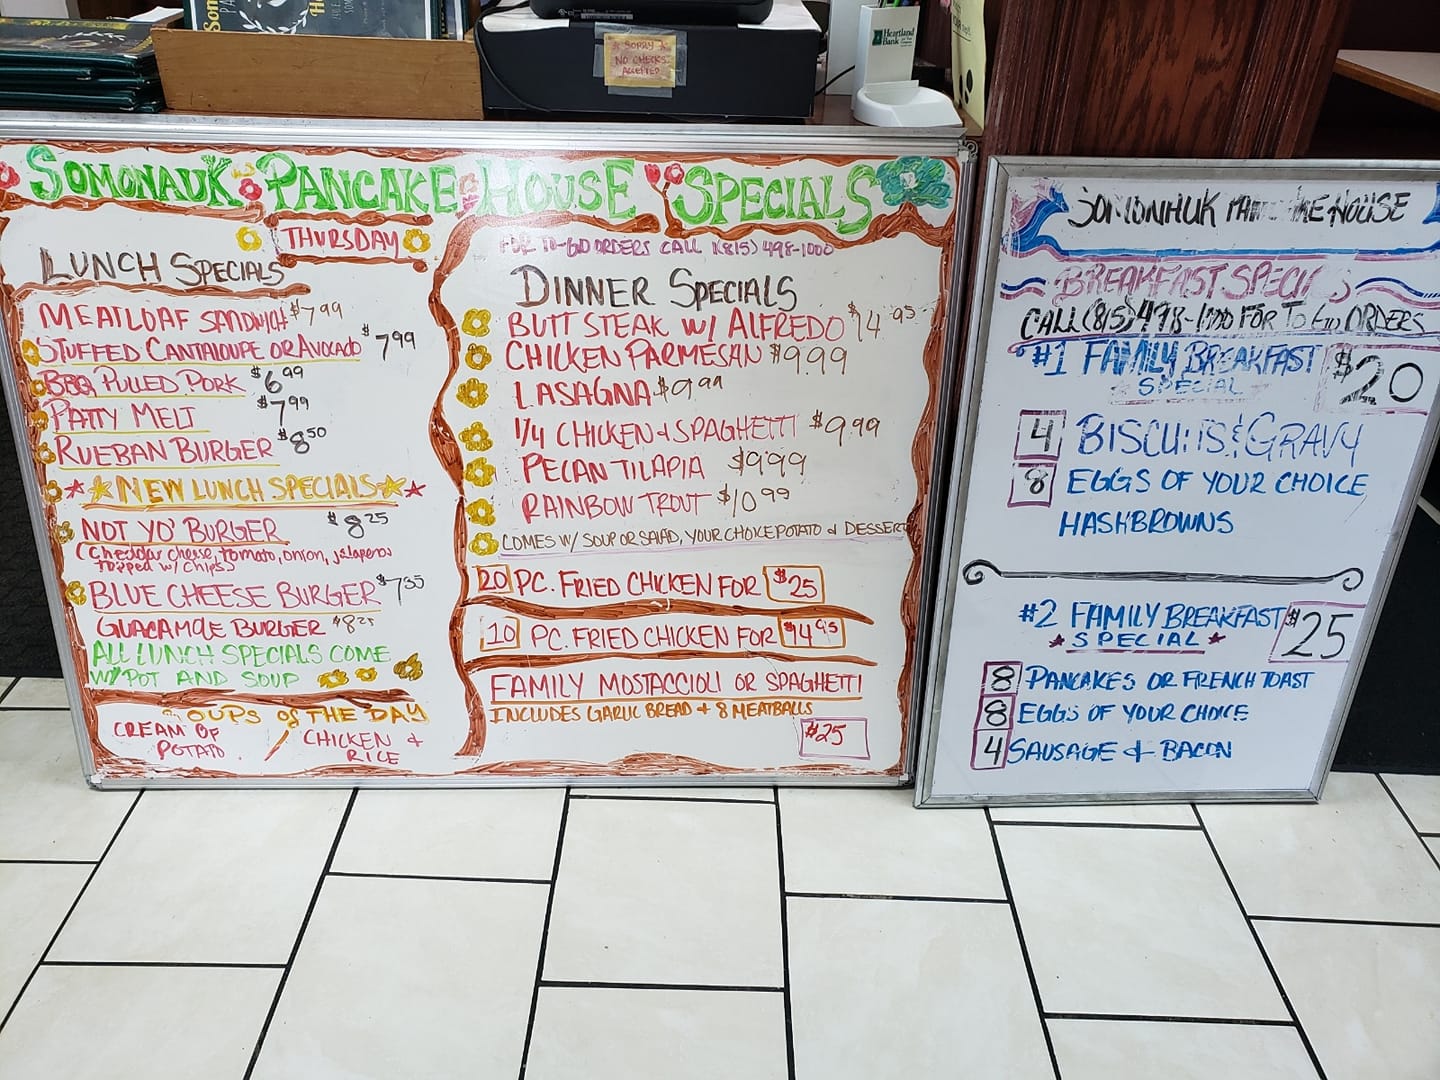 SORRY
NO CHECKS
ACCEPTED
Heartland
Bank
SOMONAUK PANCAKE HOUSE SPECIALS
THURSDAY
LUNCH SPECIALS
MEATLOAF SANDWICH $7.99
STUFFED CANTALOUPE OR AVOCADO $7.99
BBQ PULLED PORK $6.99
PATTY MELT $7.99
RUEBAN BURGER $8.50
NEW LUNCH SPECIALS
NOT YO' BURGER $8.25
(Cheddar cheese, tomato, onion, jalapenos
topped w/ chips)
BLUE CHEESE BURGER $7.35
GUACAMOLE BURGER $8.25
ALL LUNCH SPECIALS COME
W/ POT AND SOUP
OUPS of THE DAY
CREAM OF
POTATO
/ CHICKEN &
RICE
FOR TO-GO ORDERS CALL 1(815) 498-1000
DINNER SPECIALS
BUTT STEAK W/ ALFREDO $14.95
CHICKEN PARMESAN $9.99
LASAGNA $9.99
1/4 CHICKEN & SPAGHETTI $9.99
PECAN TILAPIA $9.99
RAINBOW TROUT $10.99
COMES W/ SOUP OR SALAD, YOUR CHOICE POTATO & DESSERT
20 PC. FRIED CHICKEN FOR $25
10 PC. FRIED CHICKEN FOR $14.95
FAMILY MOSTACCIOLI OR SPAGHETTI
INCLUDES GARLIC BREAD + 8 MEATBALLS
$25
SOMONHUK HOUSE
BREAKFAST SPECI S
CALL (815) 498-1100 FOR TO GO ORDERS
#1 FAMILY BREAKFAST $20
SPECIAL
4 BISCUITS & GRAVY
8 EGGS OF YOUR CHOICE
HASHBROWNS
#2 FAMILY BREAKFAST $25
SPECIAL
8 PANCAKES OR FRENCH TOAST
8 EGGS OF YOUR CHOICE
4 SAUSAGE & BACON